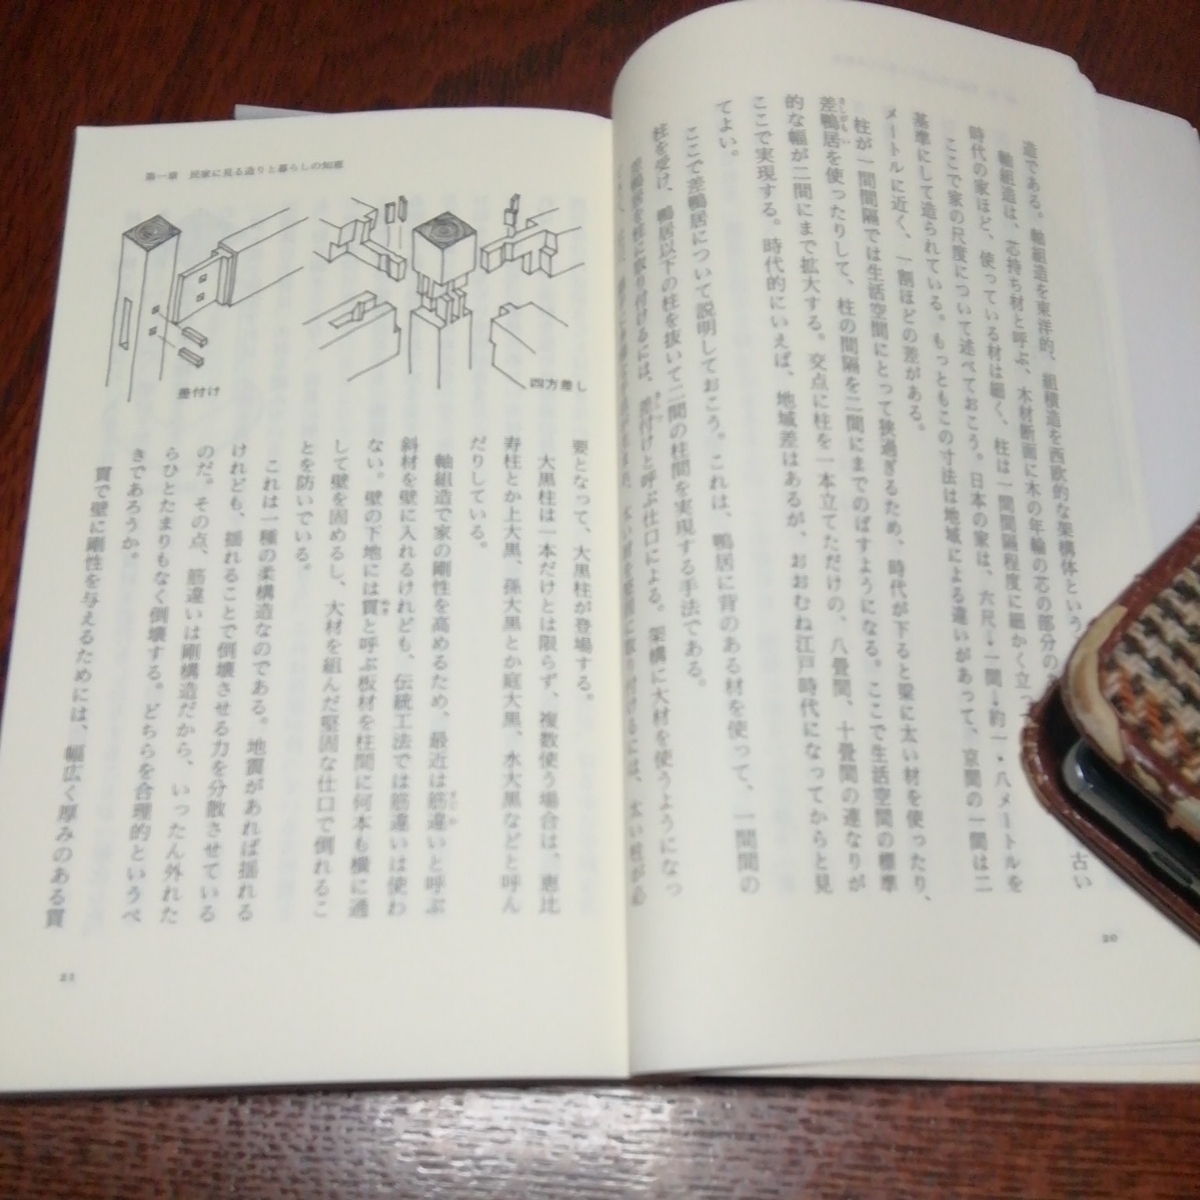 造である。軸組造を東洋的、組積造を西欧的な架構体という
軸組造は、芯持ち材と呼ぶ、木材断面に木の年輪の芯の部分の
古い
時代の家ほど、使っている材は細く、柱は一間間隔程度に細かく立つ
ここで家の尺度について述べておこう。日本の家は、六尺・一間・約一・八メートルを
基準にして造られている。もっともこの寸法は地域による違いがあって、京間の一間は二
メートルに近く、一割ほどの差がある。
柱が一間間隔では生活空間にとって狭過ぎるため、時代が下ると梁に太い材を使ったり、
差鴨居を使ったりして、柱の間隔を二間にまでのばすようになる。ここで生活空間の標準
的な幅が二間にまで拡大する。交点に柱を一本立てただけの、八畳間、十畳間の連なりが
ここで実現する。時代的にいえば、地域差はあるが、おおむね江戸時代になってからと見
てよい。
ここで差鴨居について説明しておこう。これは、鴨居に背のある材を使って、一間間の
柱を受け、鴨居以下の柱を抜いて二間の柱間を実現する手法である。
差鴨居を柱に取り付けるには、差付けと呼ぶ仕口による。架構に大材を使うようになっ
20
第一章 民家に見る造りと暮らしの知恵
差付け
四方差し
要となって、大黒柱が登場する。
大黒柱は一本だけとは限らず、複数使う場合は、恵比
寿柱とか上大黒、孫大黒とか庭大黒、水大黒などと呼ん
だりしている。
軸組造で家の剛性を高めるため、最近は筋違いと呼ぶ
斜材を壁に入れるけれども、伝統工法では筋違いは使わ
ない。壁の下地には貫と呼ぶ板材を柱間に何本も横に通
して壁を固めるし、大材を組んだ堅固な仕口で倒れるこ
とを防いでいる。
これは一種の柔構造なのである。地震があれば揺れる
けれども、揺れることで倒壊させる力を分散させている
のだ。その点、筋違いは剛構造だから、いったん外れた
らひとたまりもなく倒壊する。どちらを合理的というべ
きであろうか。
貫で壁に剛性を与えるためには、幅広く厚みのある貫
21